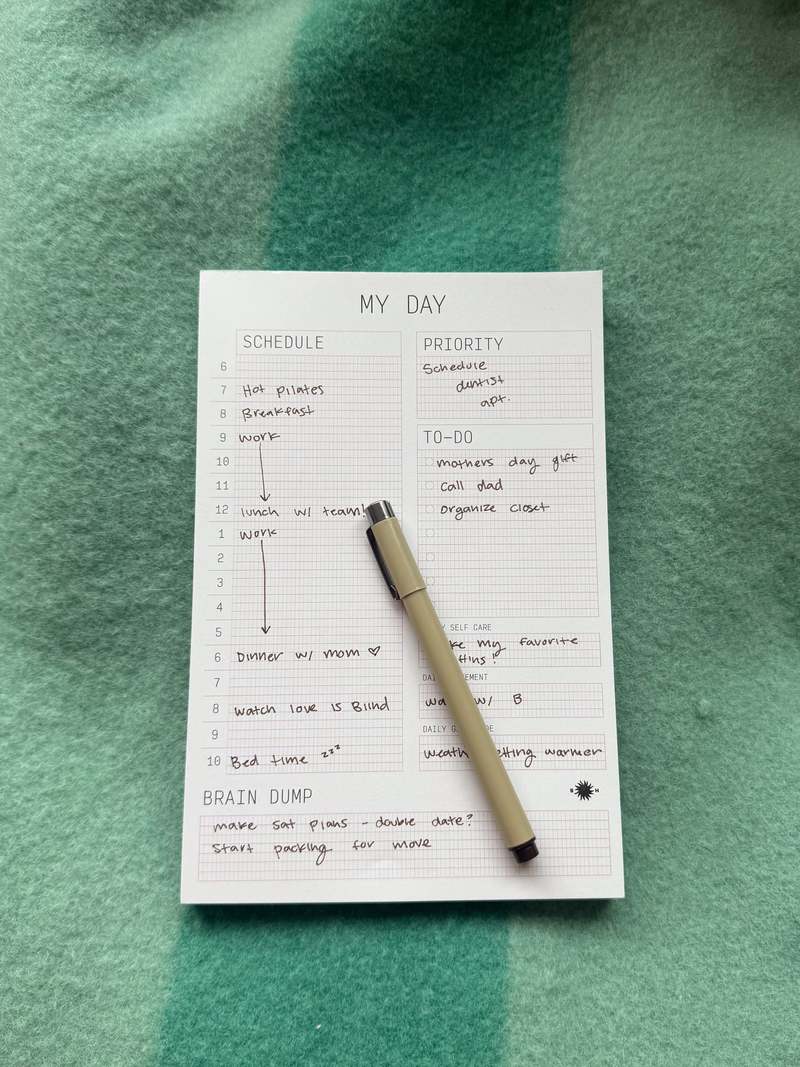 MY DAY
SCHEDULE
6
7 Hot pilates
8 Breakfast
9 work
10
11
12 lunch w/ team!
1 work
2
3
4
5
6 Dinner w/ mom ♡
7
8 watch love is Blind
9
10 Bed time zzz
PRIORITY
Schedule
dentist
apt.
TO-DO
mothers day gift
call dad
organize closet
SELF CARE
my favorite
w/ B
DAILY
warmer
BRAIN DUMP
make sat plans - double date?
Start packing for move